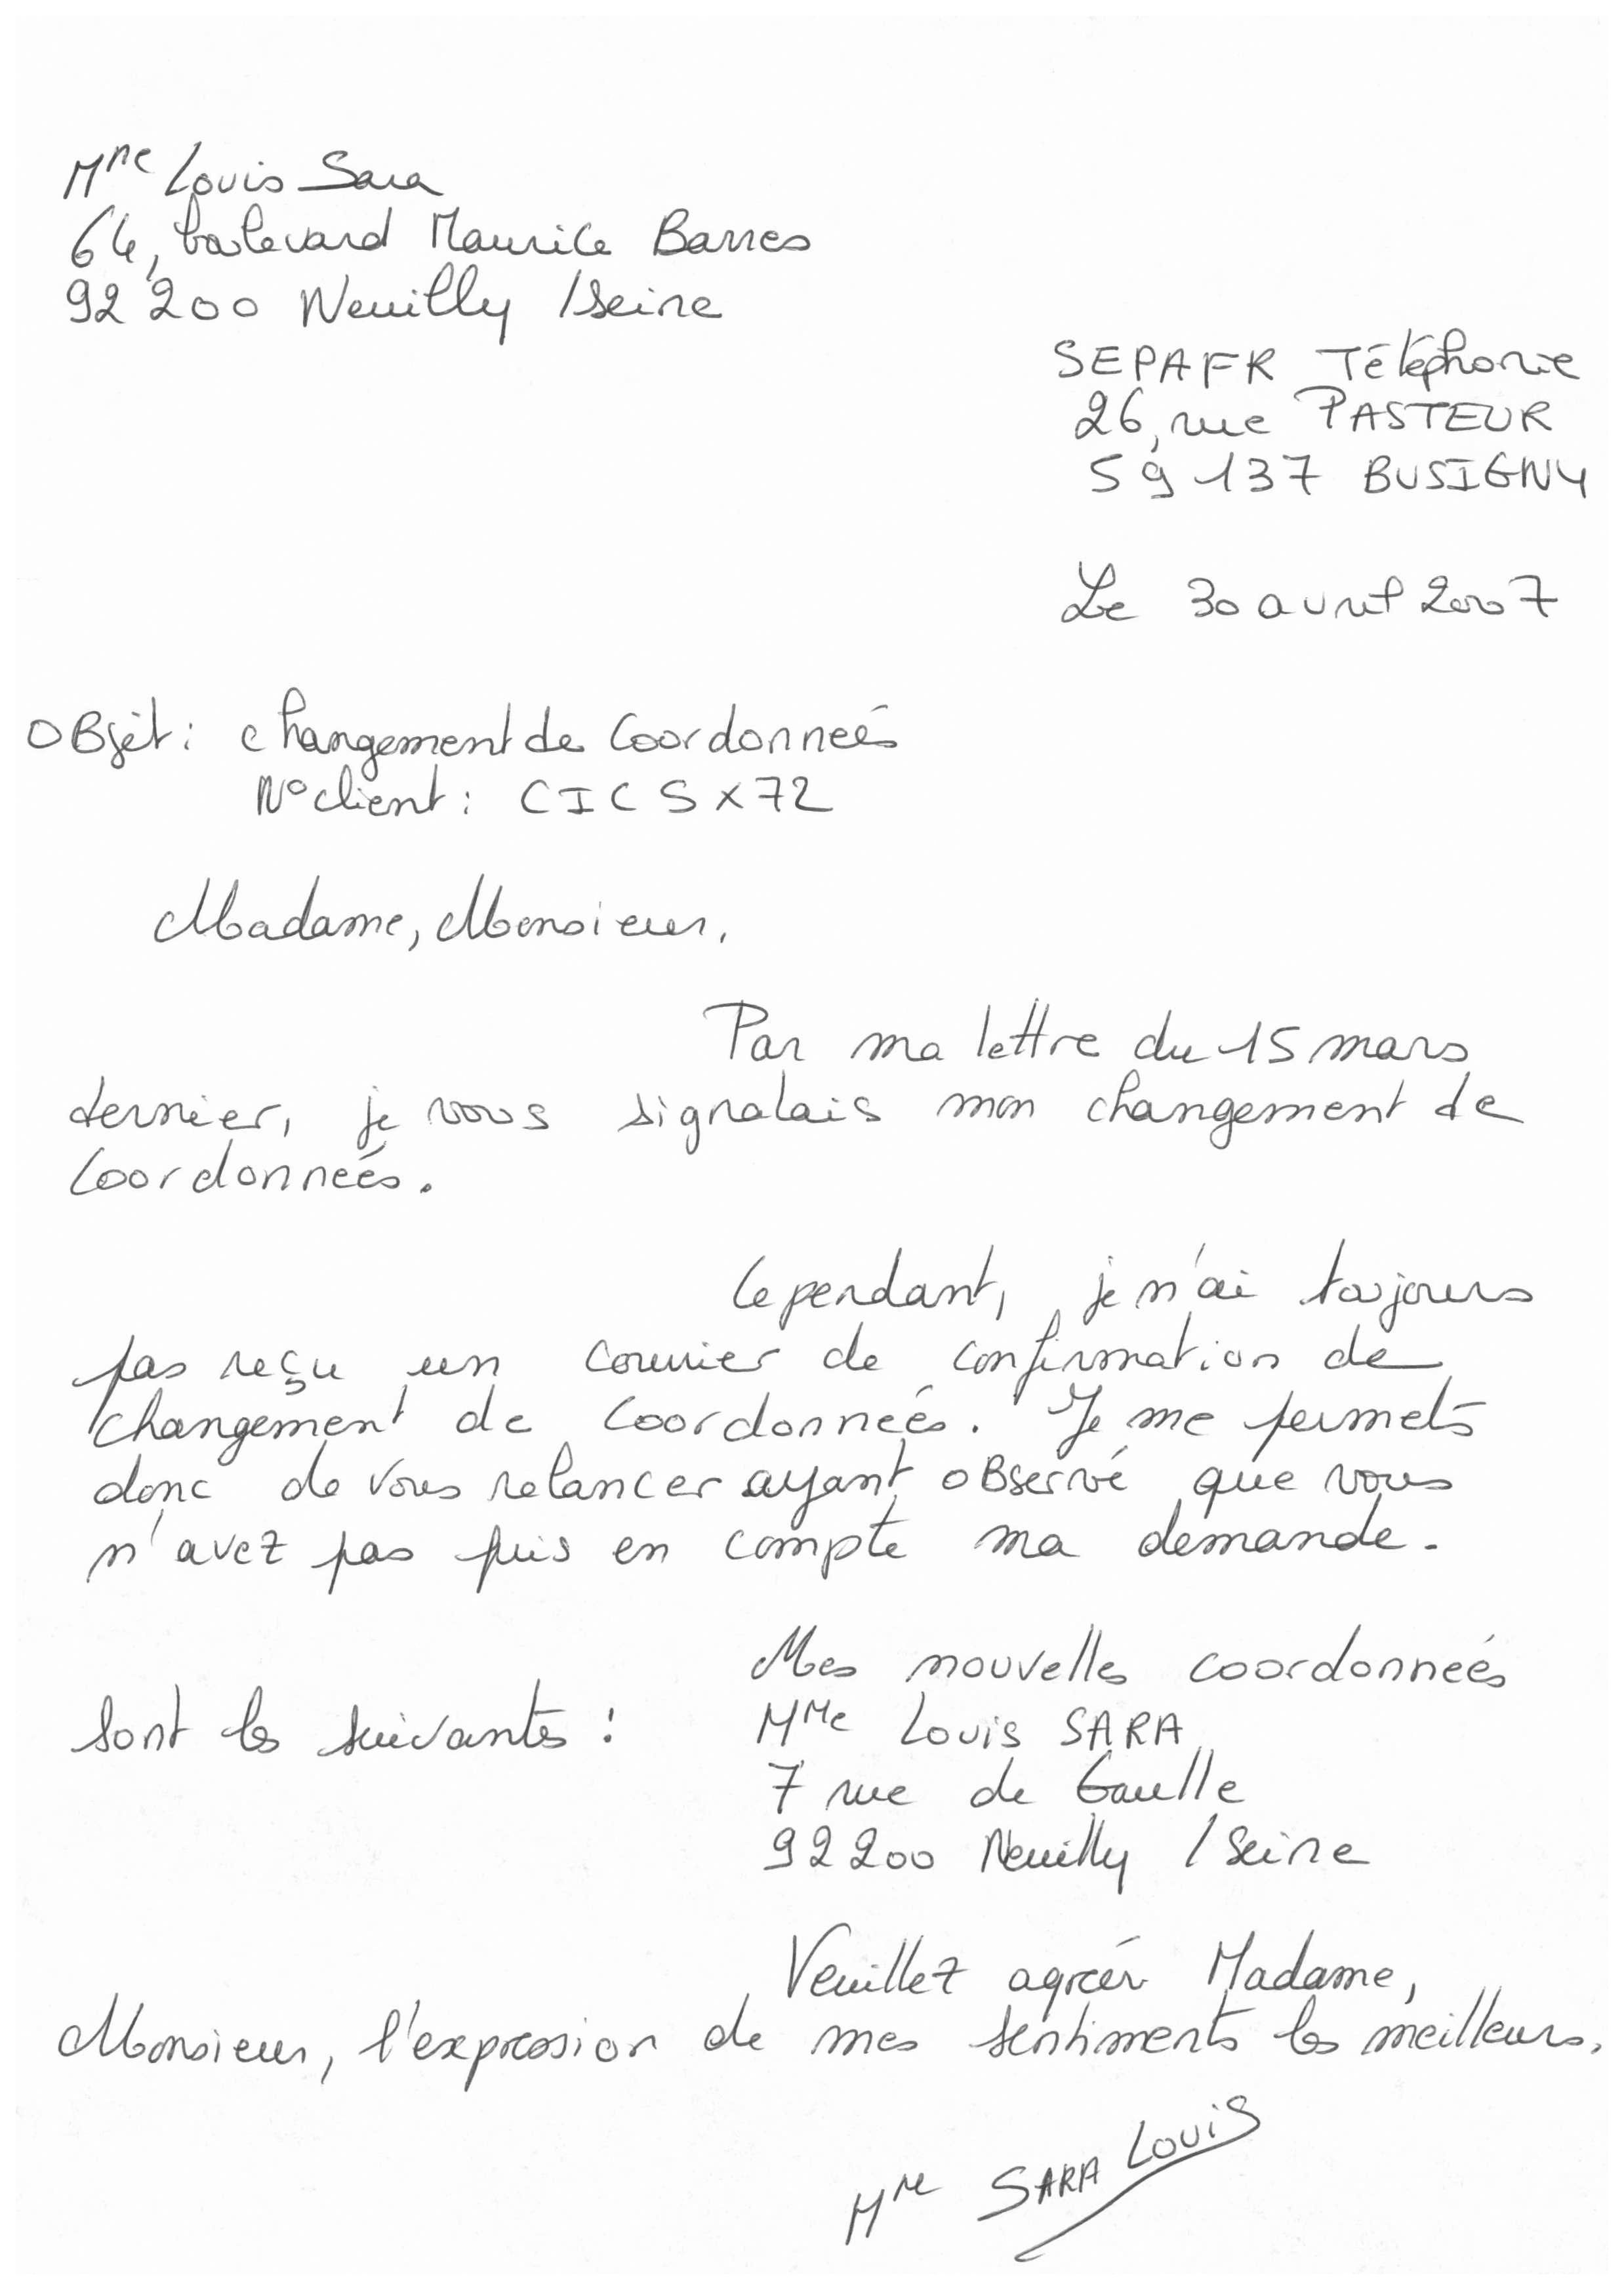 Mme Louis Sara
64, boulevard Maurice Barres
92 200 Neuilly /Seine
SEPAFR Téléphonie
26, rue PASTEUR
59 137 BUSIGNY
Le 30 avril 2007
OBjet : changement de Coordonneés
N° client : CICSX72
Madame, Monsieur,
Par ma lettre du 15 mars
dernier, je vous signalais mon changement de
Coordonneés.
Cependant, je n'ai toujours
pas reçu un courrier de confirmation de
changement de Coordonneés. Je me permets
donc de vous relancer ayant oBservé que vous
n'avez pas pris en compte ma demande.
Mes nouvelles coordonneés
sont les suivantes :
MMe Louis SARA
7 rue de Gaulle
92200 Neuilly /Seine
Veuillez agréer Madame,
Monsieur, l'expression de mes sentiments les meilleurs.
Mme SARA LOUIS